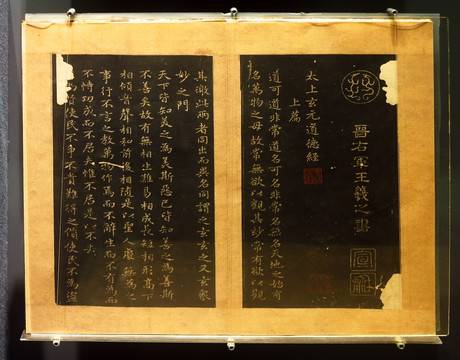 晉右軍王羲之書
太上玄元道德經
上篇
道可道非常道名可名非常名無名天地之始有
名萬物之母故常無欲以觀其妙常有欲以觀
其徼此兩者同出而異名同謂之玄玄之又玄衆
妙之門
天下皆知美之為美斯惡已皆知善之為善斯
不善矣故有無相生難易相成長短相形高下
相傾音聲相和前後相隨是以聖人處無為之
事行不言之教萬物作焉而不辭生而不有為而
不恃功成而不居夫惟不居是以不去
尚賢使民不爭不貴難得之貨使民不為盜